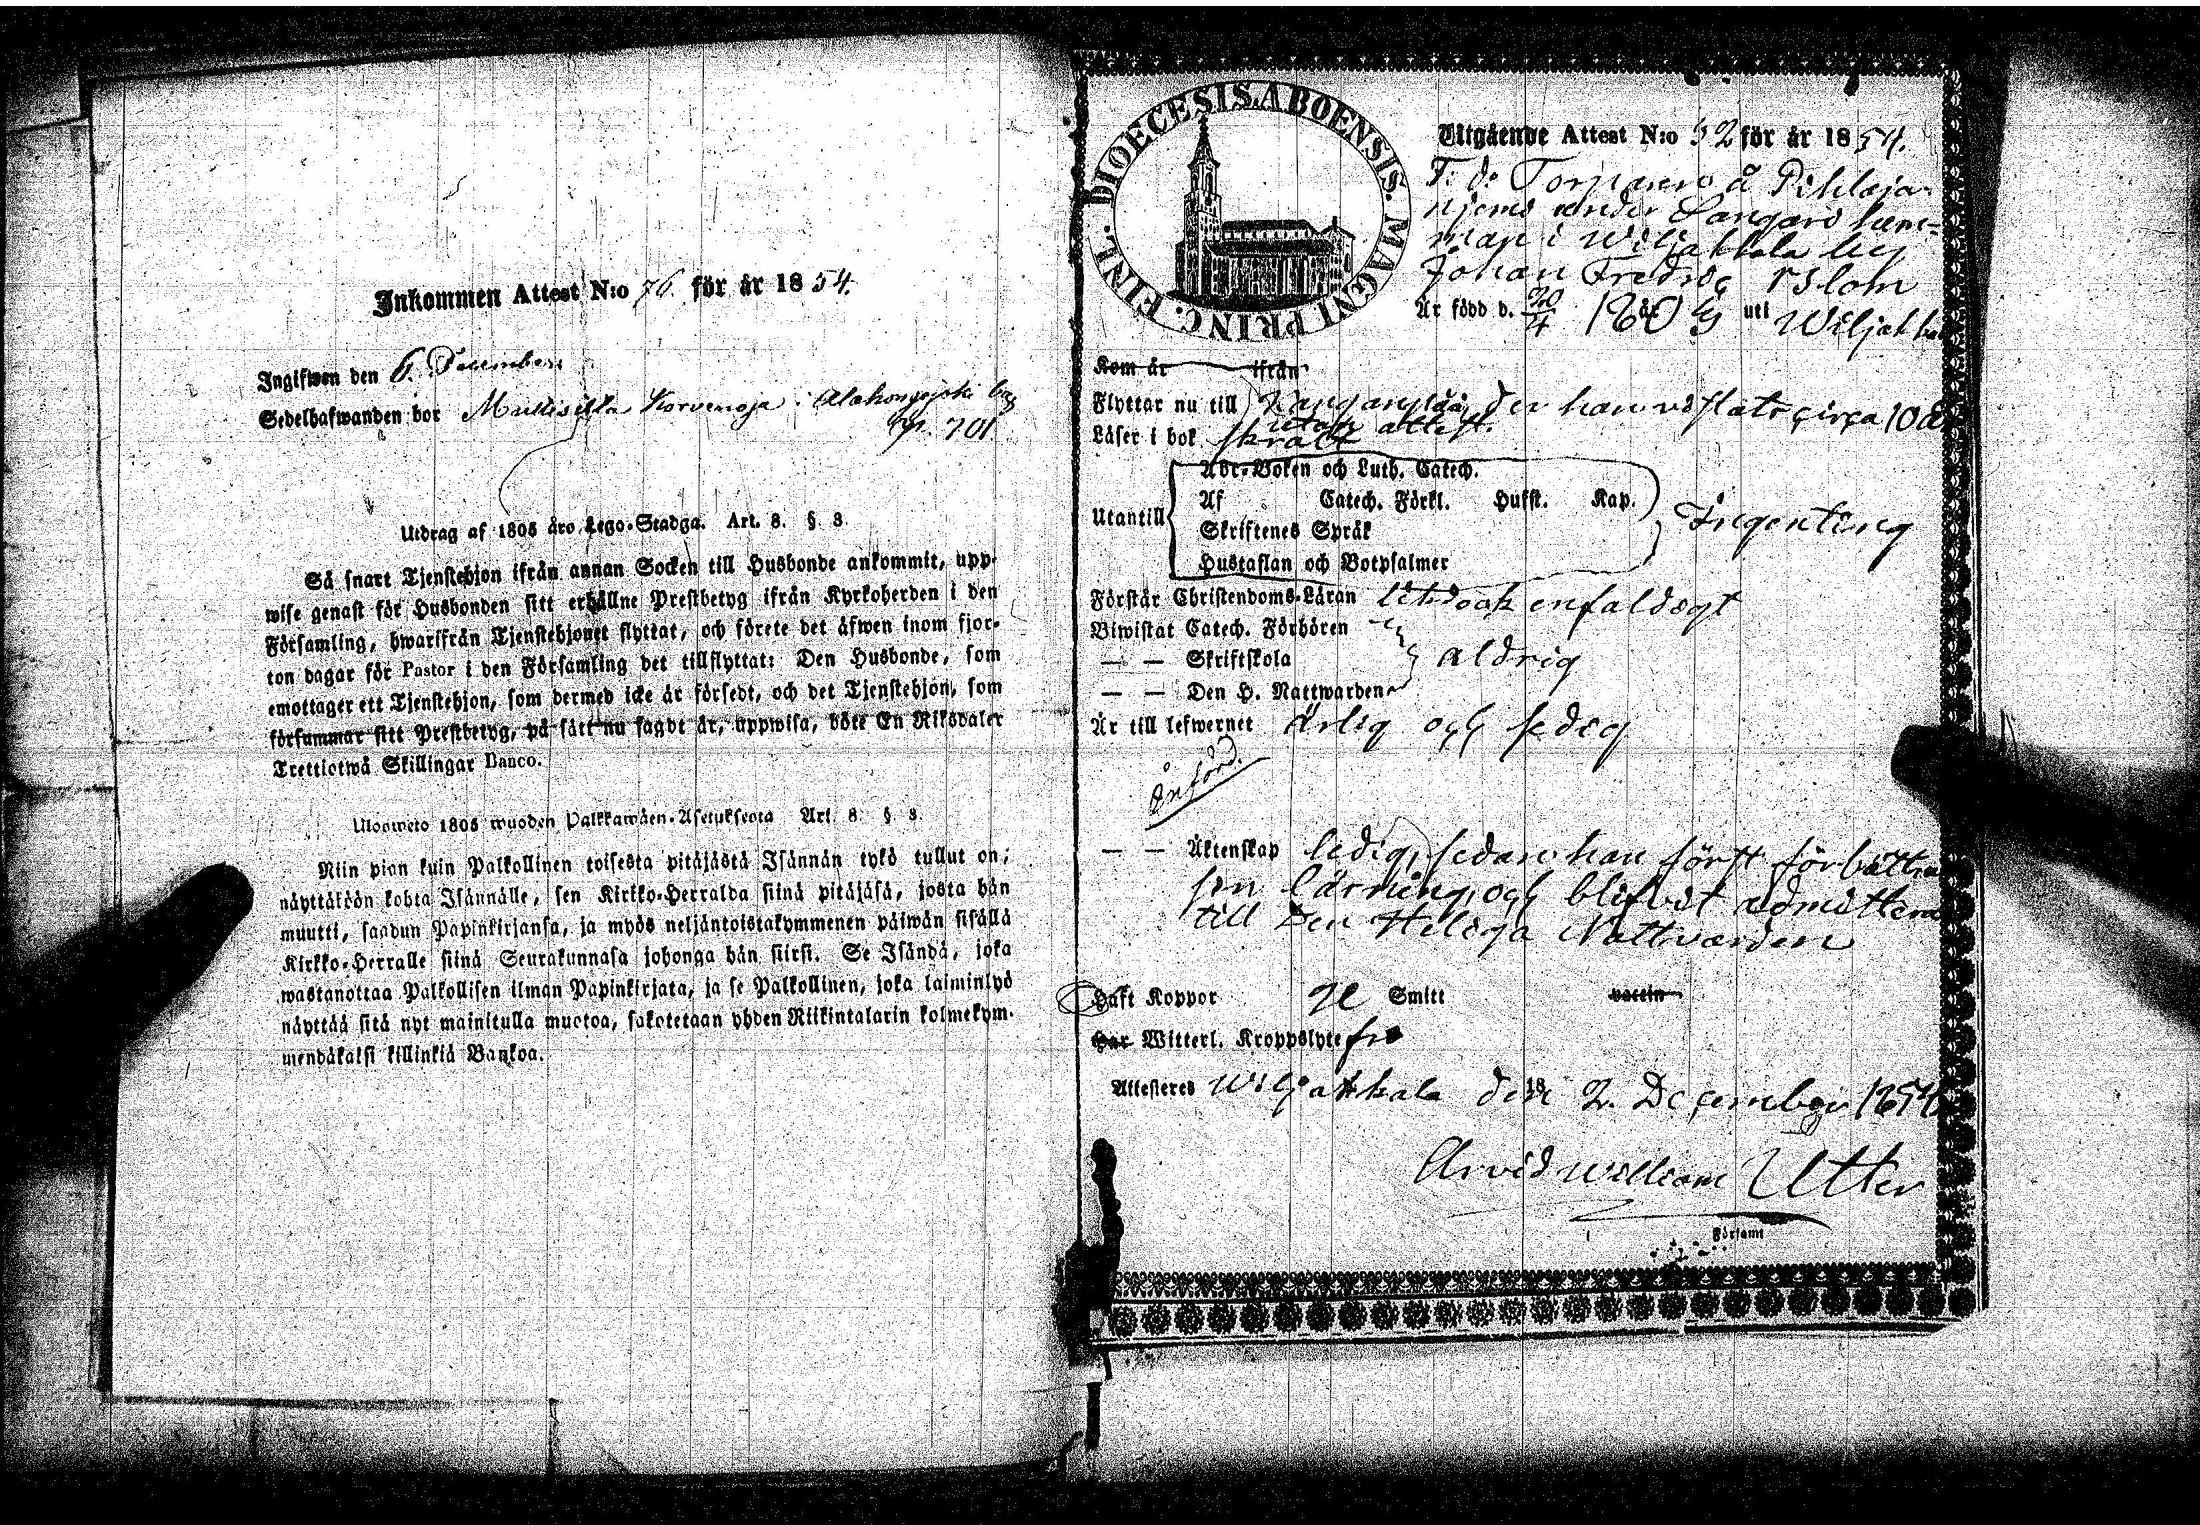 Inkommen Attest N:o 76 för år 1854.
Ingifwen den 6 December
Sedelhafwanden bor Mullisilta Korvenoja i Alahongojoki by
p. 701
Utdrag af 1805 års Lego-Stadga. Art. 8. § 3
Så snart Tjenstehjon ifrån annan Socken till Husbonde ankommit, upp-
wise genast för Husbonden sitt erhållne Prestbetyg ifrån Kyrkoherden i den
Församling, hwarifrån Tjenstehjonet flyttat, och förete det äfwen inom fjor-
ton dagar för Pastor i den Församling det tillflyttat: Den Husbonde, som
emottager ett Tjenstehjon, som dermed icke är försedt, och det Tjenstehjon, som
försummar sitt Prestbetyg, på sätt nu sagdt är, uppwisa, böte En Riksdaler
Trettiotwå Skillingar Banco.
Ulosweto 1805 wuoden Palkkawäen-Asetuksesta Art. 8 § 3
Niin pian kuin Palkollinen toisesta pitäjästä Isännän tykö tullut on;
näyttäköön kohta Isännälle, sen Kirkko-Herralda siinä pitäjäsä, josta hän
muutti, saadun Papinkirjansa, ja myös neljäntoistakymmenen päiwän sisällä
Kirkko-Herralle siinä Seurakunnasa johonga hän siirsi. Se Isändä, joka
wastanottaa Palkollisen ilman Papinkirjata, ja se Palkollinen, joka laiminlyö
näyttää sitä nyt mainitulla muotoa, sakotetaan yhden Riikintalarin kolmekym-
mendäkaksi killinkiä Bankoa.
DIOECESIS ABOENSIS. MAGNI PRINC. FINL.
Utgående Attest N:o 52 för år 1854.
F. d. Torpares å Pihlaja-
njems under Sangars hem-
man i Wiljakkala by
Johan Fredric
Är född d. 20/4 1809 uti Wiljakka
Kom år ifrån
Flyttar nu till Kangaspää, der han vistats circa 10 å
utan attest.
Läser i bok skralt
Utantill
Abc-Boken och Luth. Catech.
Af Catech. Förkl. Hufst. Kap.
Skriftenes Språk
Hustaflan och Botpsalmer
Ingenting
Förstår Christendoms-Läran litet och enfaldigt
Biwistat Catech. Förhören
— — Skriftskola aldrig
— — Den H. Nattwarden
Är till lefwernet ärlig och sedig
Införd.
— — Äktenskap ledig, sedan han först förbättra
sin lärning, och blifvit admittera
till Den Heliga Nattvarden
Haft Koppor ej Smitt vaccin
Har Witterl. Kroppslyte fri
Attesteres Wiljakkala den 18 2. December 1854
Arvid William Utter
Församl